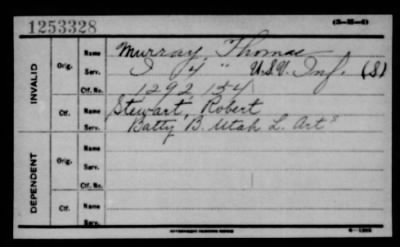 1253328 (3-25-6)
INVALID
Orig. Name Murray, Thomas
Serv. I 4 " U.S.V. Inf. (S)
Ctf. No. 1292154
Ctf. Name Stewart, Robert
Serv. Batty B. Utah L. Art
DEPENDENT
Orig. Name
Serv.
Ctf. No.
Ctf. Name
Serv.